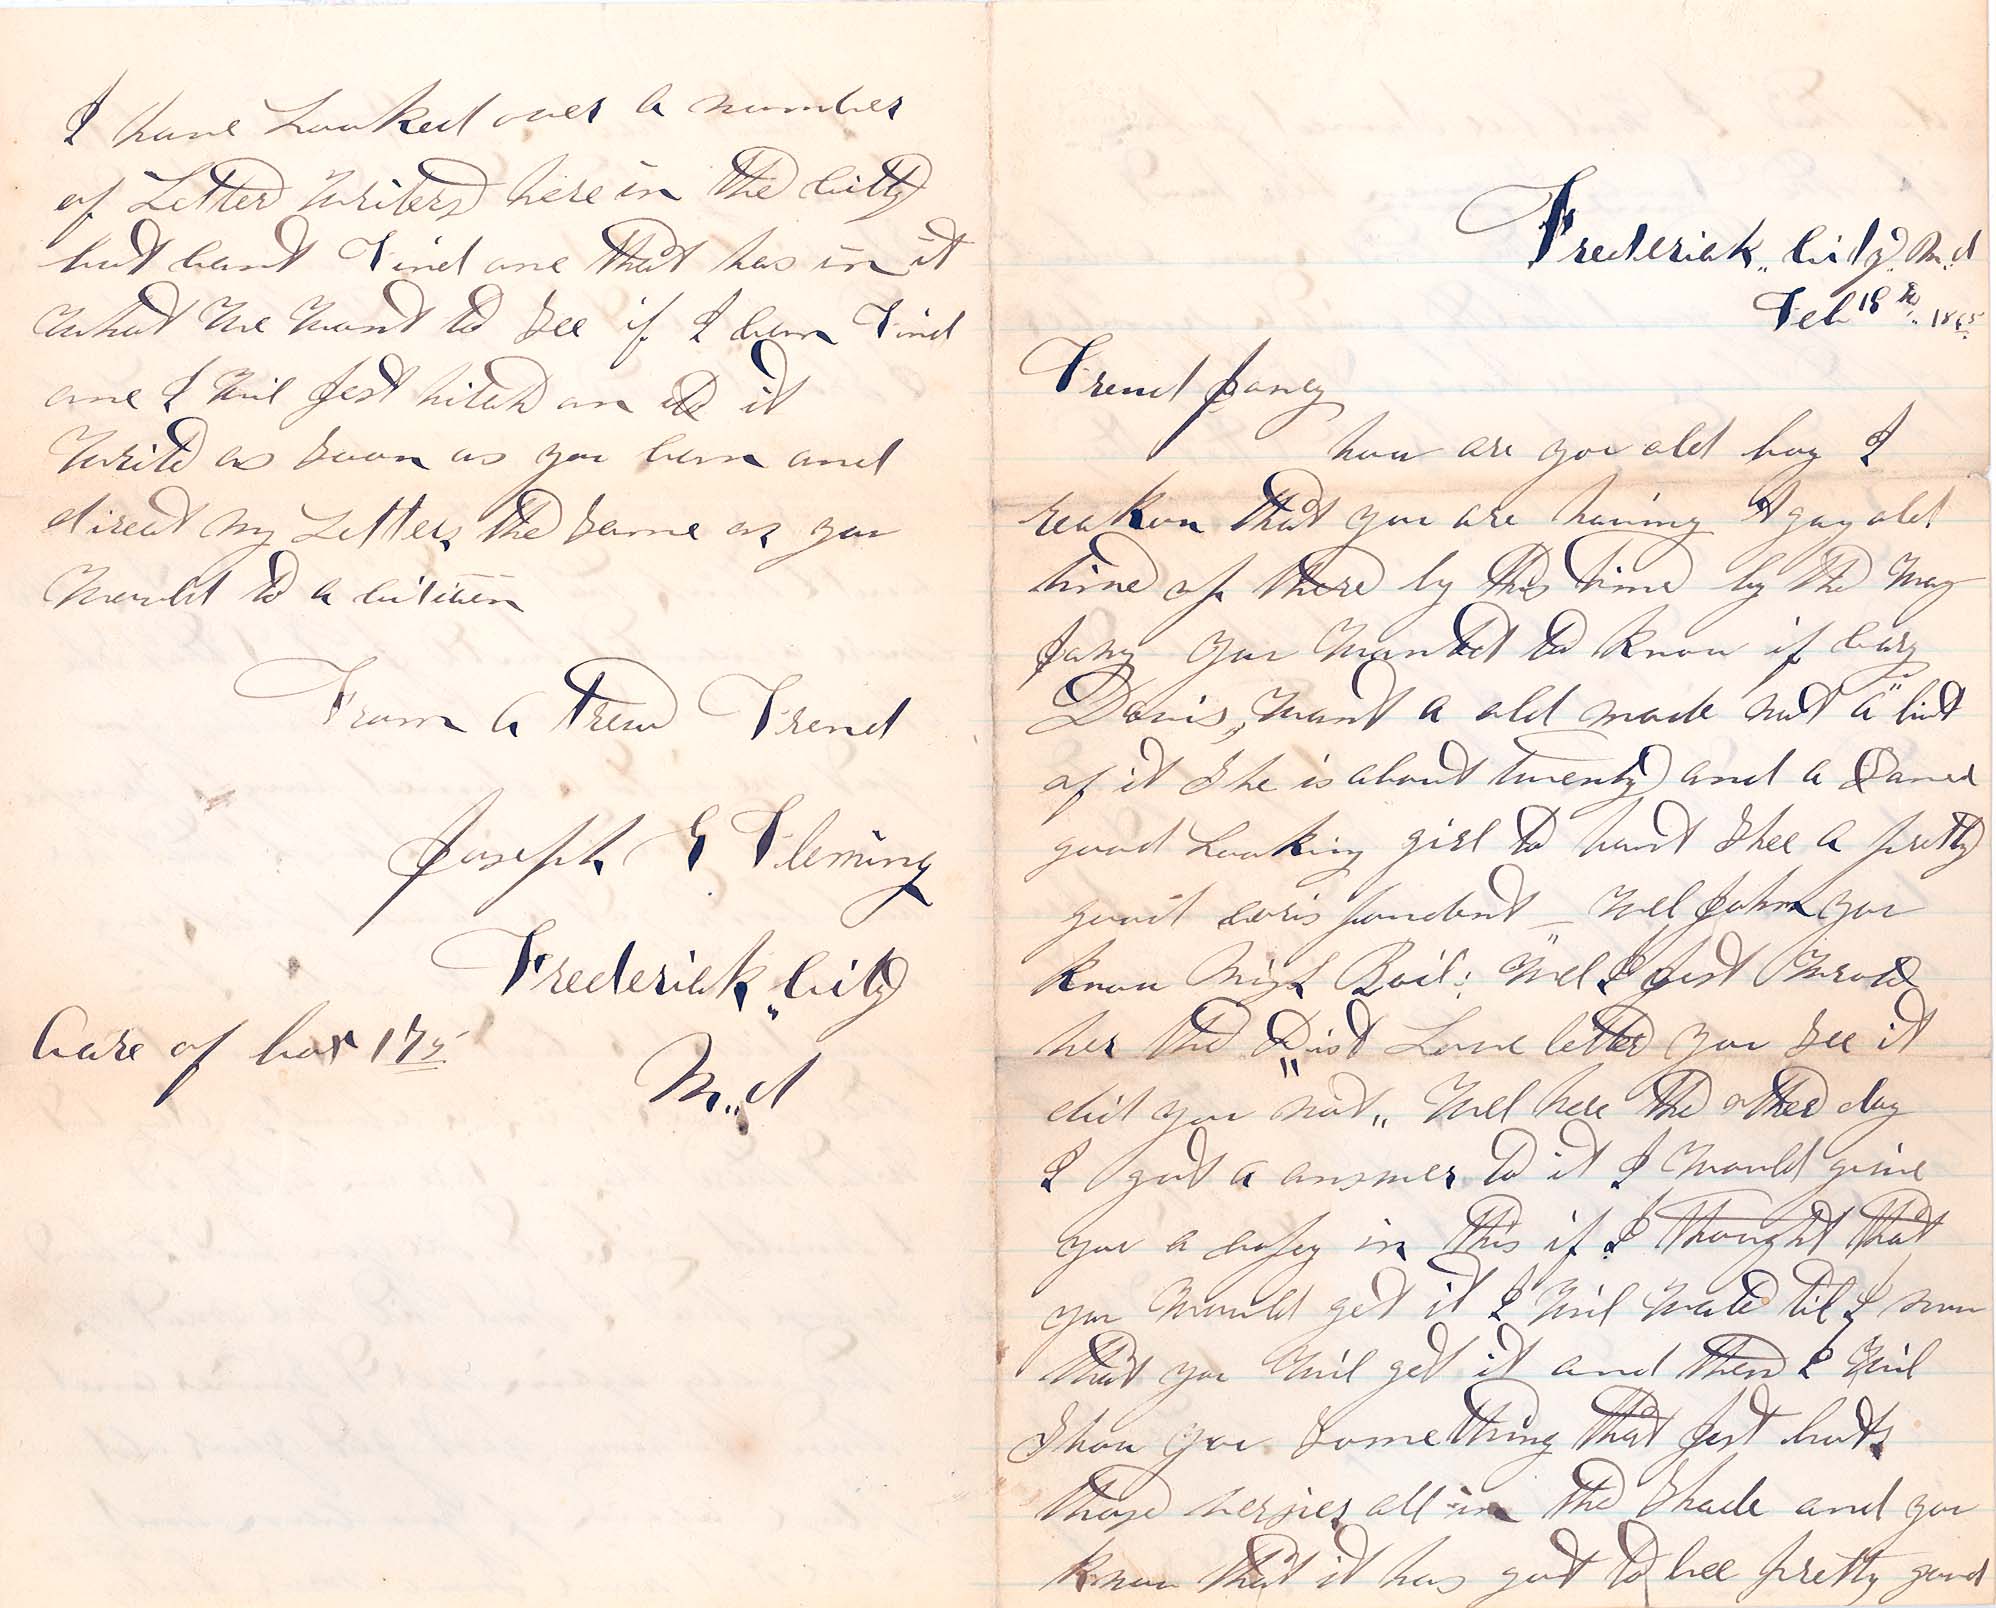 Frederick City Md
Feb 18th 1865
Frend Janey
how are you old boy I
reckon that you are having A gay old
time up there by this time by the way
Jany you wanted to know if Cary
Davis, want a old made not "a" bit
of it She is about twenty and a Damd
good Looking girl to boot Shee a pretty
good corispondent – Wel John you
know Migh Boil: Wel I jest wrote
her the Dist Love letter you see it
did you not,, Wel here the other day
I got a answer to it I would give
you a copy in this if I thought that
you would get it I Wil wate til I now
that you Wil get it and then I Wil
Show you Something that jest beats
those versies all in the Shade and you
know that it has got to bee pretty good
I have Looked over a number
of Letter Writers here in the Citty
but cant Find one that has in it
what we want to See if I can Find
one I Wil jest hitch on to it
Write as Soon as you can and
direct my Letters the Same as you
would to a citizen
From a Trew Frend
Joseph E Fleming
Frederick City
Care of box 175
M..d